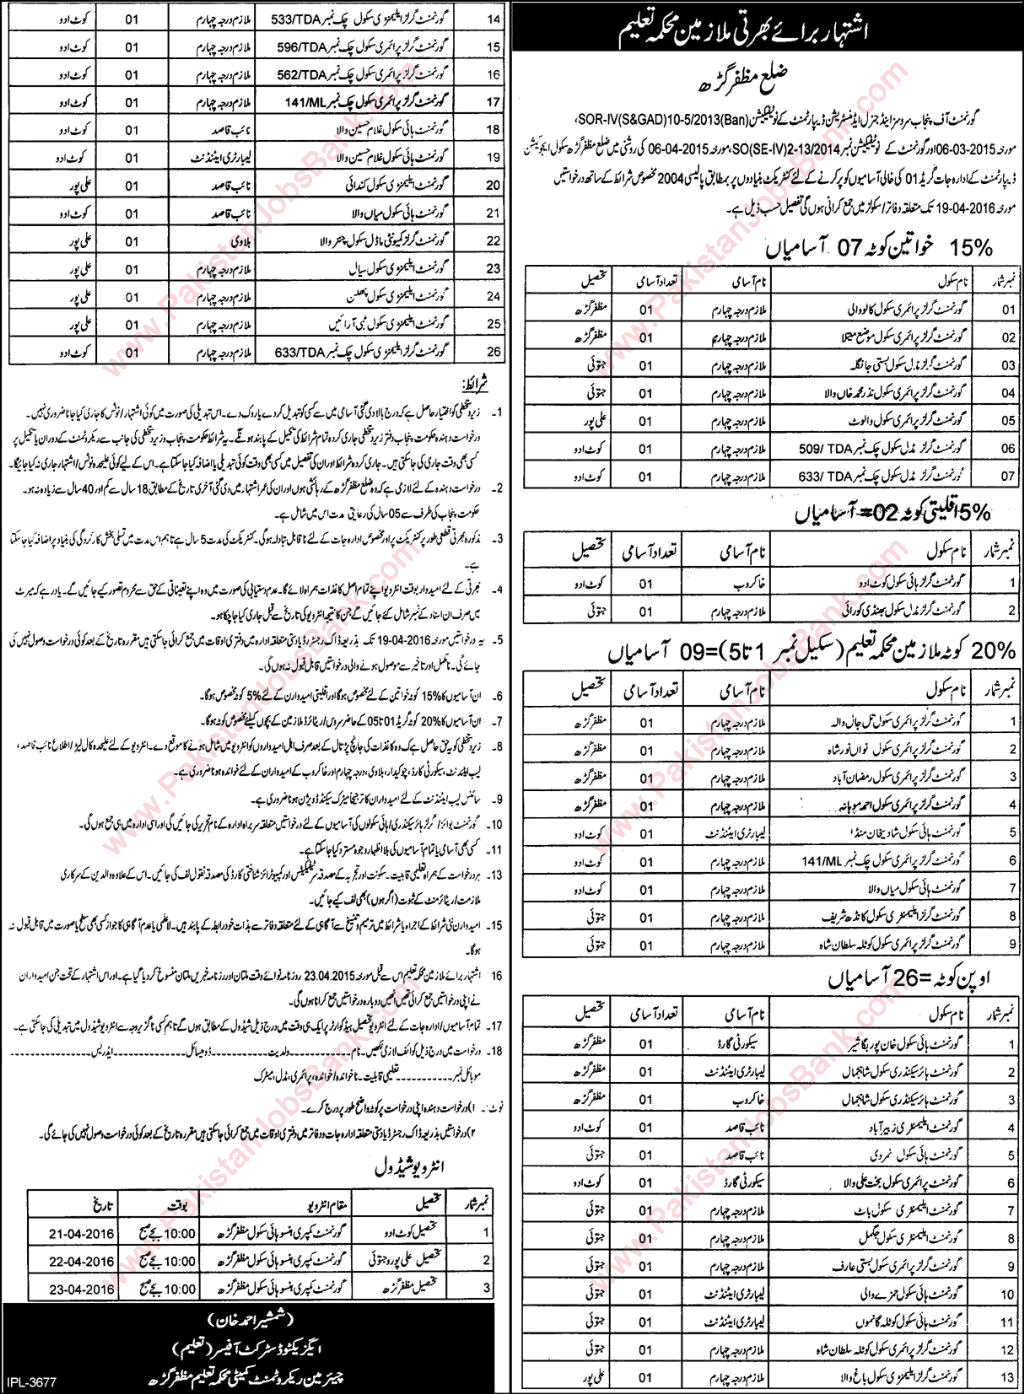 اشتہار برائے بھرتی ملازمین محکمہ تعلیم
ضلع مظفرگڑھ
گورنمنٹ آف پنجاب سروسز اینڈ جنرل ایڈمنسٹریشن ڈیپارٹمنٹ کے نوٹیفکیشن SOR-IV(S&GAD)10-5/2013(Ban)،
مورخہ 06-03-2015 اور گورنمنٹ کے نوٹیفکیشن نمبر SO(SE-IV)2-13/2014 مورخہ 06-04-2015 کی روشنی میں ضلع مظفرگڑھ سکول ایجوکیشن
ڈیپارٹمنٹ کے ادارہ جات گریڈ 01 کی خالی آسامیوں کو پر کرنے کے لئے کنٹریکٹ بنیادوں پر بمطابق پالیسی 2004 مخصوص شرائط کے ساتھ درخواستیں
مورخہ 19-04-2016 تک متعلقہ دفاتر/سکولز میں جمع کرانی ہوں گی تفصیل حسب ذیل ہے۔
15% خواتین کوٹہ 07 آسامیاں
نمبر شمار نام سکول نام آسامی تعداد آسامی تحصیل
01 گورنمنٹ گرلز پرائمری سکول کالووالی ملازم درجہ چہارم 01 مظفرگڑھ
02 گورنمنٹ گرلز پرائمری سکول موضع میتلا ملازم درجہ چہارم 01 مظفرگڑھ
03 گورنمنٹ گرلز مڈل سکول بستی جانگلہ ملازم درجہ چہارم 01 جتوئی
04 گورنمنٹ گرلز پرائمری سکول نذر محمد خان والا ملازم درجہ چہارم 01 جتوئی
05 گورنمنٹ گرلز پرائمری سکول والوٹ ملازم درجہ چہارم 01 علی پور
06 گورنمنٹ گرلز مڈل سکول چک نمبر 509/TDA ملازم درجہ چہارم 01 کوٹ ادو
07 گورنمنٹ گرلز مڈل سکول چک نمبر 633/TDA ملازم درجہ چہارم 01 کوٹ ادو
5% اقلیتی کوٹہ 02= آسامیاں
نمبر شمار نام سکول نام آسامی تعداد آسامی تحصیل
1 گورنمنٹ گرلز ہائی سکول کوٹ ادو خاکروب 01 کوٹ ادو
2 گورنمنٹ گرلز مڈل سکول بھنڈی کورائی ملازم درجہ چہارم 01 جتوئی
20% کوٹہ ملازمین محکمہ تعلیم (سکیل نمبر 1 تا 5)=09 آسامیاں
نمبر شمار نام سکول نام آسامی تعداد آسامی تحصیل
1 گورنمنٹ گرلز پرائمری سکول تل جال والہ ملازم درجہ چہارم 01 مظفرگڑھ
2 گورنمنٹ گرلز پرائمری سکول نواں نور شاہ ملازم درجہ چہارم 01 مظفرگڑھ
3 گورنمنٹ گرلز پرائمری سکول رمضان آباد ملازم درجہ چہارم 01 مظفرگڑھ
4 گورنمنٹ گرلز پرائمری سکول احمد موہانہ ملازم درجہ چہارم 01 مظفرگڑھ
5 گورنمنٹ ہائی سکول شادیخان منڈا لیبارٹری اٹینڈنٹ 01 کوٹ ادو
6 گورنمنٹ گرلز پرائمری سکول چک نمبر 141/ML ملازم درجہ چہارم 01 کوٹ ادو
7 گورنمنٹ ہائی سکول میاں والا ملازم درجہ چہارم 01 کوٹ ادو
8 گورنمنٹ گرلز ایلیمنٹری سکول کانڈھ شریف ملازم درجہ چہارم 01 جتوئی
9 گورنمنٹ گرلز پرائمری سکول کوٹلہ سلطان شاہ ملازم درجہ چہارم 01 جتوئی
اوپن کوٹہ =26 آسامیاں
نمبر شمار نام سکول نام آسامی تعداد آسامی تحصیل
1 گورنمنٹ ہائی سکول خان پور بگا شیر سیکورٹی گارڈ 01 مظفرگڑھ
2 گورنمنٹ ہائر سیکنڈری سکول شاہجمال لیبارٹری اٹینڈنٹ 01 مظفرگڑھ
3 گورنمنٹ ہائر سیکنڈری سکول شاہجمال خاکروب 01 مظفرگڑھ
4 گورنمنٹ ایلیمنٹری زبیر آباد نائب قاصد 01 کوٹ ادو
5 گورنمنٹ ہائی سکول نمردی نائب قاصد 01 جتوئی
6 گورنمنٹ پرائمری سکول بخت علی والا سیکورٹی گارڈ 01 کوٹ ادو
7 گورنمنٹ ایلیمنٹری سکول بات ملازم درجہ چہارم 01 جتوئی
8 گورنمنٹ ایلیمنٹری سکول جگمل ملازم درجہ چہارم 01 جتوئی
9 گورنمنٹ گرلز پرائمری سکول بستی عارف ملازم درجہ چہارم 01 جتوئی
10 گورنمنٹ ہائی سکول حمزے والی لیبارٹری اٹینڈنٹ 01 جتوئی
11 گورنمنٹ ہائی سکول کوٹلہ گانموں لیبارٹری اٹینڈنٹ 01 جتوئی
12 گورنمنٹ گرلز پرائمری سکول کوٹلہ سلطان شاہ ملازم درجہ چہارم 01 جتوئی
13 گورنمنٹ گرلز ایلیمنٹری سکول باغ والا ملازم درجہ چہارم 01 علی پور
14 گورنمنٹ گرلز ایلیمنٹری سکول چک نمبر 533/TDA ملازم درجہ چہارم 01 کوٹ ادو
15 گورنمنٹ گرلز پرائمری سکول چک نمبر 596/TDA ملازم درجہ چہارم 01 کوٹ ادو
16 گورنمنٹ گرلز پرائمری سکول چک نمبر 562/TDA ملازم درجہ چہارم 01 کوٹ ادو
17 گورنمنٹ گرلز پرائمری سکول چک نمبر 141/ML ملازم درجہ چہارم 01 کوٹ ادو
18 گورنمنٹ ہائی سکول غلام حسین والا نائب قاصد 01 کوٹ ادو
19 گورنمنٹ ہائی سکول غلام حسین والا لیبارٹری اٹینڈنٹ 01 کوٹ ادو
20 گورنمنٹ ایلیمنٹری سکول کندائی نائب قاصد 01 علی پور
21 گورنمنٹ ہائی سکول میاں والا نائب قاصد 01 کوٹ ادو
22 گورنمنٹ گرلز کمیونٹی ماڈل سکول چنر والا بلاوی 01 علی پور
23 گورنمنٹ ایلیمنٹری سکول سیال ملازم درجہ چہارم 01 علی پور
24 گورنمنٹ ایلیمنٹری سکول پھلن ملازم درجہ چہارم 01 علی پور
25 گورنمنٹ ایلیمنٹری سکول نبی آرائیں ملازم درجہ چہارم 01 علی پور
26 گورنمنٹ گرلز ایلیمنٹری سکول چک نمبر 633/TDA ملازم درجہ چہارم 01 کوٹ ادو
شرائط:
1۔ زیر دستخطی کو اختیار حاصل ہے کہ درج بالا دی گئی آسامی میں سے کسی کو تبدیل کر دے یا روک دے۔ اس تبدیلی کی صورت میں کوئی اشتہار/نوٹس کا جاری کیا جانا ضروری نہیں۔
درخواست دہندہ حکومت پنجاب دفتر زیر دستخطی جاری کردہ تمام شرائط کی تکمیل کے پابند ہونگے۔ یہ شرائط حکومت پنجاب و زیر دستخطی کی جانب سے ریکروٹمنٹ کے دوران یا تکمیل پر
کسی بھی وقت جاری کی جا سکتی ہیں۔ جاری کردہ شرائط اور ان کی تفصیل میں کسی بھی وقت کوئی تبدیلی یا اضافہ کیا جا سکتا ہے۔ اس کے لیے کوئی علیحدہ نوٹس/اشتہار جاری نہ کیا جائیگا۔
2۔ درخواست دہندہ کے لئے لازمی ہے کہ وہ ضلع مظفرگڑھ کے رہائشی ہوں اور ان کی عمر اشتہار میں دی گئی آخری تاریخ کے مطابق 18 سال سے کم اور 40 سال سے زیادہ نہ ہو۔
حکومت پنجاب کی طرف سے 05 سال کی رعایتی مدت اس میں شامل ہے۔
3۔ مذکورہ بھرتی قطعی طور پر کنٹریکٹ پر اور مخصوص ادارہ جات کے لئے ناقابل تبادلہ ہوگی۔ کنٹریکٹ کی مدت 5 سال ہے تاہم اس مدت میں تسلی بخش کارکردگی کی بنیاد پر اضافہ کیا جا سکتا
ہے۔
4۔ بھرتی کے لئے امیدوار بوقت انٹرویو اپنے تمام اصل کاغذات ہمراہ لائے گا۔ عدم دستیابی کی صورت میں وہ اپنے تعیناتی کے حق سے محروم تصور کیے جائیں گے۔ یاد رہے کہ میرٹ
میں صرف ان اسناد کے نمبر شامل کئے جائیں گے جن کا نتیجہ انٹرویو کی تاریخ سے قبل جاری کیا جا چکا ہو۔
5۔ یہ درخواستیں مورخہ 19-04-2016 تک بذریعہ ڈاک رجسٹرڈ یا دستی متعلقہ ادارہ میں دفتری اوقات میں جمع کرائی جا سکتی ہیں مقررہ تاریخ کے بعد کوئی درخواست وصول نہیں کی
جائے گی۔ نامکمل اور تاخیر سے موصول ہونے والی درخواستیں قابل قبول نہ ہوں گی۔
6۔ ان آسامیوں کا 15% کوٹہ خواتین کے لئے مخصوص ہوگا اور اقلیتی امیدواران کے لئے 5% کوٹہ مخصوص ہوگا۔
7۔ ان آسامیوں کا 20% کوٹہ گریڈ 01 تا 05 کے حاضر سروس/ریٹائرڈ ملازمین کے بچوں کیلئے مخصوص کوٹہ ہوگا۔
8۔ زیر دستخطی کو یہ حق حاصل ہے کہ وہ کاغذات کی جانچ پڑتال کے بعد صرف اہل امیدواروں کو انٹرویو میں شامل ہونے کا موقع دے۔ انٹرویو کے لئے علیحدہ کال لیٹر/اطلاع نائب قاصد،
لیب اٹینڈنٹ، سیکورٹی گارڈ، چوکیدار، بلاوی، درجہ چہارم اور خاکروب کے امیدواران کے لئے خواندہ ہونا ضروری ہے۔
9۔ سائنس لیب اٹینڈنٹ کے لئے امیدواران کا ترجیحاً میٹرک سیکنڈ ڈویژن ہونا ضروری ہے۔
10۔ گورنمنٹ بوائز/گرلز ہائر سیکنڈری/ہائی سکولوں کی آسامیوں کے لئے درخواستیں متعلقہ سربراہ ادارہ کے نام تحریر کی جائیں گی اور اسی ادارہ میں ہی جمع ہوں گی۔
11۔ کسی بھی آسامی یا تمام آسامیوں کی بلا اظہار وجوہ مسترد کیا جا سکتا ہے۔
13۔ ہر درخواست کے ہمراہ تعلیمی قابلیت۔ سکونت اور تجربہ کے مصدقہ سرٹیفکیٹس اور کمپیوٹرائز شناختی کارڈ کی مصدقہ نقول لف کی جائیں۔ اس کے علاوہ والدین کے سرکاری
ملازمت/ریٹائرمنٹ کے ثبوت (اگر ہوں) بھی لف کیے جائیں۔
15۔ امیدواران نئی شرائط کے اجراء یا شرائط میں ترمیم و تنسیخ سے آگاہی کے لئے متعلقہ دفاتر سے بذات خود رابطہ کے پابند ہیں۔ لاعلمی یا عدم آگاہی کا جواز کسی بھی سطح یا صورت میں قابل قبول نہ
ہوگا۔
16۔ اشتہار برائے ملازمین محکمہ تعلیم اس سے قبل مورخہ 23.04.2015 روزنامہ نوائے وقت ملتان اور روزنامہ خبریں ملتان منسوخ کر دیا گیا ہے۔ اور اس اشتہار کے تحت جن امیدواران
نے اپنی درخواستیں جمع کرائی تھیں انہیں دوبارہ درخواستیں جمع کرانا ہوں گی۔
17۔ تمام آسامیوں/ادارہ جات کے لئے انٹرویو تحصیل ہیڈ کوارٹر پر ایک ہی وقت میں درج ذیل شیڈول کے مطابق ہوں گے تاہم کسی ناگزیر وجہ سے انٹرویو شیڈول میں تبدیلی کی جا سکتی ہے۔
18۔ درخواست میں درج ذیل کوائف لازمی لکھیں۔ نام ۔۔۔۔۔۔ ولدیت ۔۔۔۔۔۔ ڈومیسائل ۔۔۔۔۔۔ ایڈریس ۔۔۔۔۔۔
موبائل نمبر ۔۔۔۔۔۔ تعلیمی قابلیت ۔ ناخواندہ/خواندہ، پرائمری، مڈل، میٹرک
نوٹ۔ ۱) درخواست دہندہ اپنی درخواست پر کوٹہ واضح طور پر درج کرے۔
۲) درخواستیں بذریعہ ڈاک رجسٹرڈ یا دستی متعلقہ ادارہ جات و دفاتر میں دفتری اوقات میں جمع کرائی جا سکتی ہیں مقررہ تاریخ کے بعد کوئی درخواست وصول نہیں کی جائے گی۔
انٹرویو شیڈول
نمبر شمار تحصیل مقام انٹرویو بوقت تاریخ
1 تحصیل کوٹ ادو گورنمنٹ کمپری ہنسو ہائی سکول مظفرگڑھ 10:00 بجے صبح 21-04-2016
2 تحصیل علی پور و جتوئی گورنمنٹ کمپری ہنسو ہائی سکول مظفرگڑھ 10:00 بجے صبح 22-04-2016
3 تحصیل مظفرگڑھ گورنمنٹ کمپری ہنسو ہائی سکول مظفرگڑھ 10:00 بجے صبح 23-04-2016
(شمشیر احمد خان)
ایگزیکٹو ڈسٹرکٹ آفیسر (تعلیم)
چیئرمین ریکروٹمنٹ کمیٹی محکمہ تعلیم مظفرگڑھ
IPL-3677
www.PakistanJobsBank.com